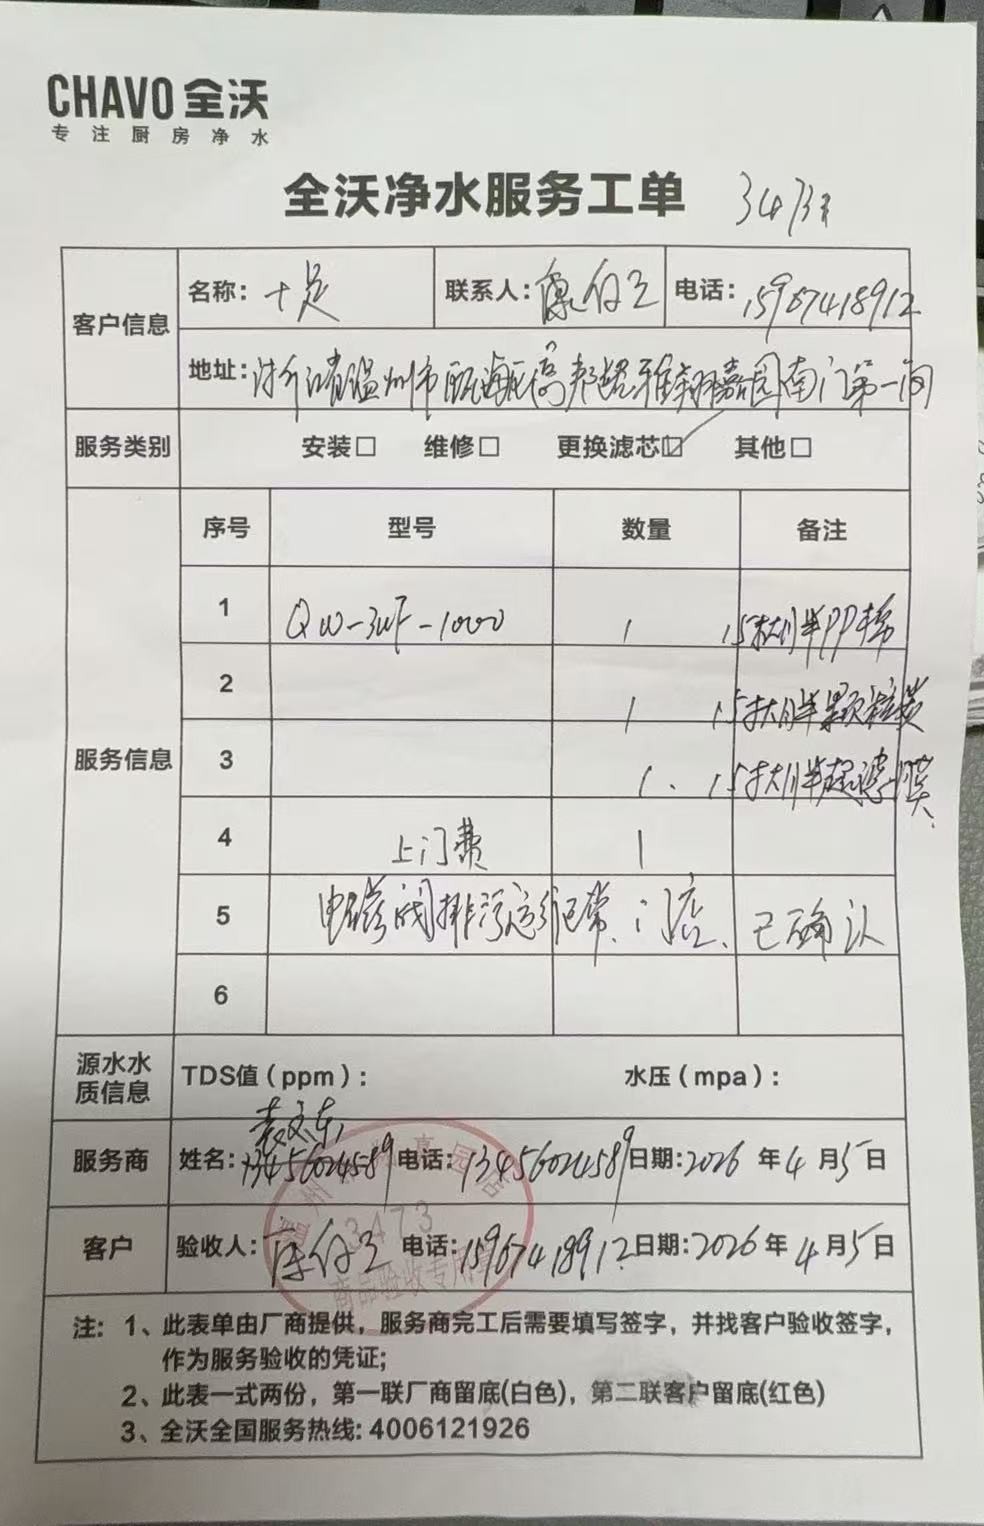 CHAVO 全沃
专注厨房净水
全沃净水服务工单 3473
客户信息 名称：十足 联系人： 电话：15967418912
地址：浙江省温州市瓯海区 雅翔嘉园南门第一间
服务类别 安装□ 维修□ 更换滤芯☑ 其他□
服务信息 序号 型号 数量 备注
1 QW-3UF-1000 1 1.5 大胖PP棉
2 1 1.5 大胖颗粒炭
3 1 1.5 大胖超滤膜
4 上门费 1
5 电磁阀排污运行正常、门店、已确认
6
源水水质信息 TDS值（ppm）： 水压（mpa）：
袁文东
服务商 姓名：13456024589 电话：13456024589 日期：2026 年 4 月 5 日
客户 验收人： 电话：15967418912 日期：2026 年 4 月 5 日
3473
商品验收专用章
注：1、此表单由厂商提供，服务商完工后需要填写签字，并找客户验收签字，
作为服务验收的凭证;
2、此表一式两份，第一联厂商留底(白色)，第二联客户留底(红色)
3、全沃全国服务热线: 4006121926